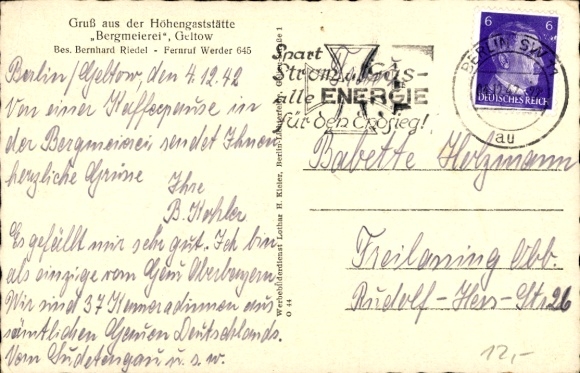 Gruß aus der Höhengaststätte
„Bergmeierei“, Geltow
Bes. Bernhard Riedel - Fernruf Werder 645
Berlin/Geltow, den 4.12.42
Von einer Kaffeepause in
der Bergmeierei sendet Ihnen
herzliche Grüsse
Ihre
B. Kohler
Es gefällt mir sehr gut. Ich bin
als einzige vom Gau Oberbayern.
Wir sind 37 Kameradinnen aus
sämtlichen Gauen Deutschlands.
Vom Sudetengau u. s. w.
Werbebilderdienst Lothar H. Kieler, Berlin-Lichterfelde
O 44
Spart
Strom u. Gas-
alle ENERGIE
für den Endsieg!
BERLIN SW 11
au
6 6
DEUTSCHES REICH
Babette Holzmann
Freilassing Obb.
Rudolf-Hess-Str. 26
12,-